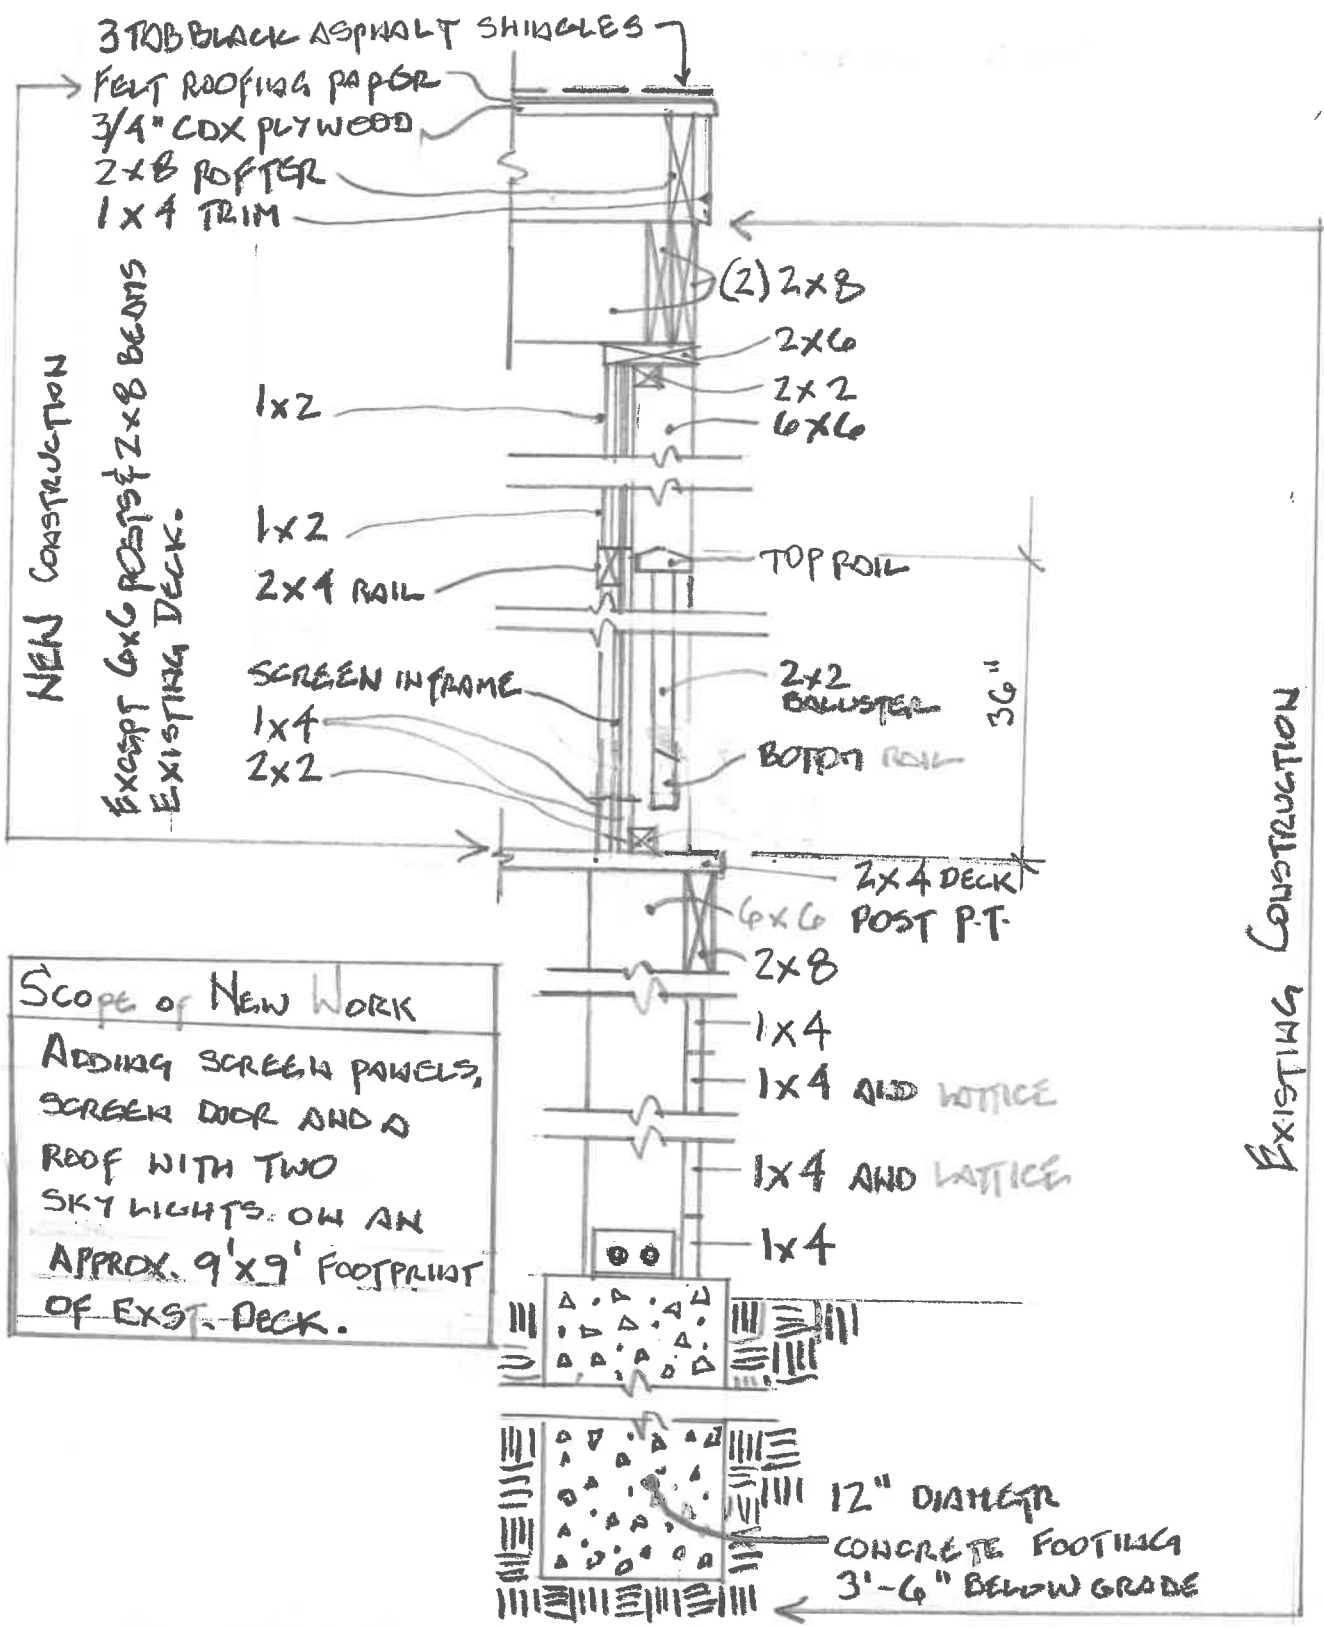 3 TAB BLACK ASPHALT SHINGLES
FELT ROOFING PAPER
3/4" CDX PLYWOOD
2x8 RAFTER
1x4 TRIM
NEW CONSTRUCTION
EXCEPT 6x6 POSTS & 2x8 BEAMS
EXISTING DECK.
(2) 2x8
2x6
2x2
6x6
1x2
1x2
2x4 RAIL
TOP RAIL
SCREEN IN FRAME
1x4
2x2
2x2
BALUSTER
BOTOM RAIL
36"
2x4 DECK
6x6 POST P.T.
2x8
1x4
1x4 AND LATTICE
1x4 AND LATTICE
1x4
EXISTING CONSTRUCTION
SCOPE OF NEW WORK
ADDING SCREEN PANELS,
SCREEN DOOR AND A
ROOF WITH TWO
SKY LIGHTS. ON AN
APPROX. 9'x9' FOOTPRINT
OF EXST. DECK.
12" DIAMETR
CONCRETE FOOTING
3'-6" BELOW GRADE